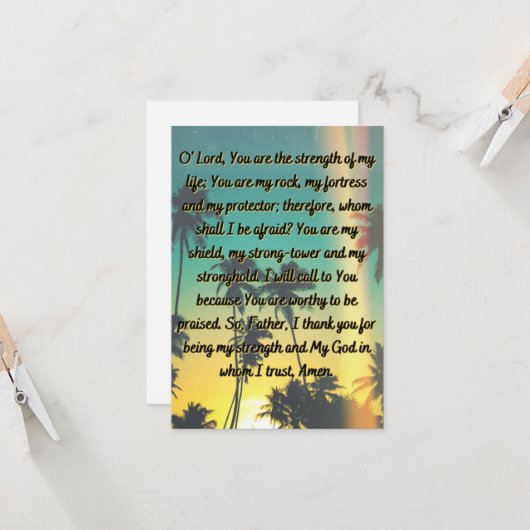 O' Lord, You are the strength of my
life; You are my rock, my fortress
and my protector; therefore, whom
shall I be afraid? You are my
shield, my strong-tower and my
stronghold. I will call to You
because You are worthy to be
praised. So, Father, I thank you for
being my strength and My God in
whom I trust, Amen.